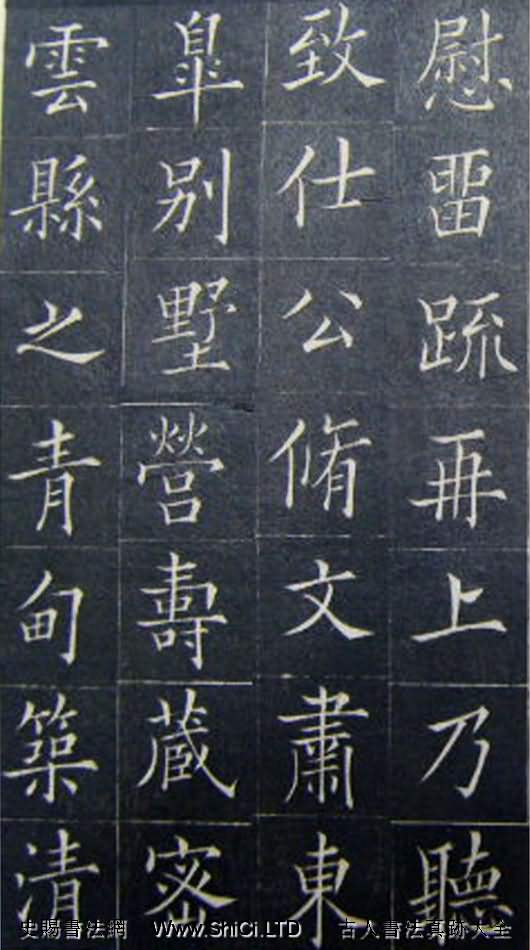 慰畱䟽再上乃聽
致仕公脩文肅東
臯别墅營壽蔵宻
雲縣之青甸築清
史賜書法網 www.ShiCi.LTD 古人書法真跡大全